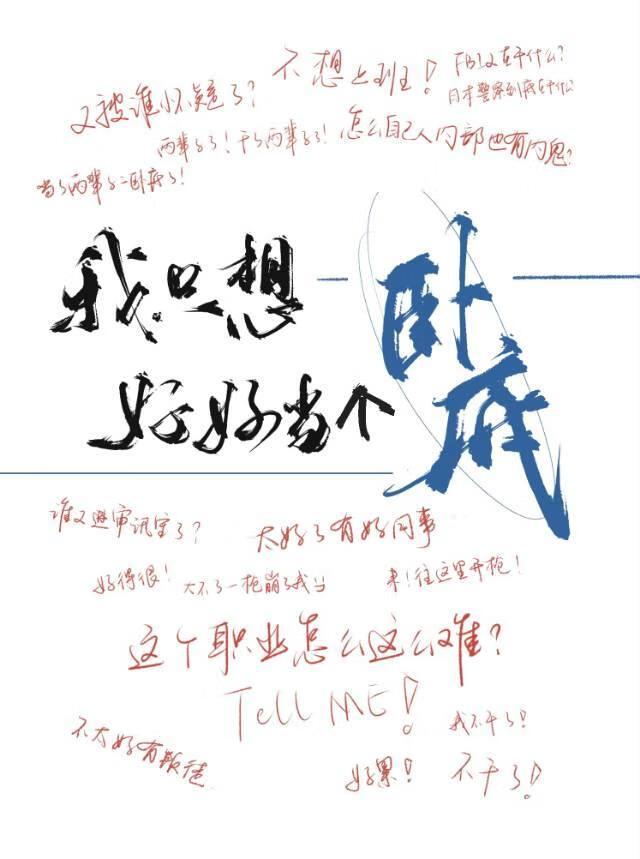 不想上班!
FBI又在干什么?
日本警察到底在干什么
又被谁怀疑了?
两辈子了!干了两辈子了!
怎么自己人内部也有内鬼?
当了两辈子卧底了!
我只想
卧底
好好当个
谁又进审讯室了?
太好了有好同事
好得很!
大不了一枪崩了我当
来!往这里开枪!
这个职业怎么这么难?
Tell ME!
我不干了!
不太好有叛徒
好累!
不干了!